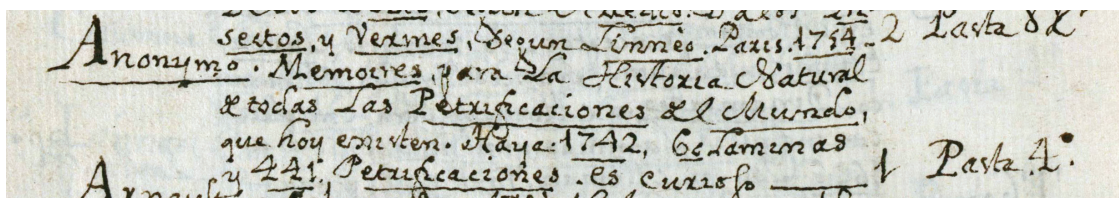 sectos, y Vermes, Segun Linnèo. Paris. 1754 - 2 Pasta 8º
Anonymo. Memoires, para La Historia Natural
de todas las Petrificaciones del Mundo,
que hoy existen. Haya. 1742, 6c Laminas
y 441. Petrificaciones. es curioso ——— 1 Pasta 4º.